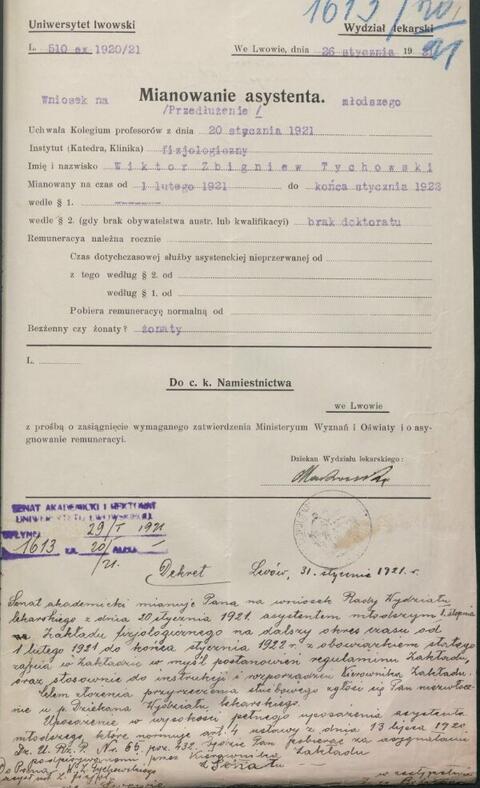 1613/20/21
Uniwersytet lwowski
Wydział lekarski
L. 510 ex 1920/21
We Lwowie, dnia 26 stycznia 19
Wniosek na Mianowanie asystenta. młodszego
/Przedłużenie/
Uchwała Kolegium profesorów z dnia 20 stycznia 1921
Instytut (Katedra, Klinika) fizjologiczny
Imię i nazwisko Wiktor Zbigniew Tychowski
Mianowany na czas od 1 lutego 1921 do końca stycznia 1922
wedle § 1.
wedle § 2. (gdy brak obywatelstwa austr. lub kwalifikacyi) brak doktoratu
Remuneracya należna rocznie
Czas dotychczasowej służby asystenckiej nieprzerwanej od
z tego według § 2. od
według § 1. od
Pobiera remuneracyę normalną od
Bezżenny czy żonaty? żonaty
L.
Do c. k. Namiestnictwa
we Lwowie
z prośbą o zasiągnięcie wymaganego zatwierdzenia Ministeryum Wyznań i Oświaty i o asy-
gnowanie remuneracyi.
Dziekan Wydziału lekarskiego:
SENAT AKADEMICKI I REKTORAT
UNIWERSYTETU LWOWSKIEGO
WPŁYNĘŁO 29/I 1921
1613 20/21.
Dekret Lwów, 31. stycznia 1921. r.
Senat akademicki mianuje Pana na wniosek Rady Wydziału
lekarskiego z dnia 20 stycznia 1921. asystentem młodszym
Zakładu fizjologicznego na dalszy okres czasu od
1 lutego 1921 do końca stycznia 1922 r. z obowiązkiem stałego
zajęcia w Zakładzie w myśl postanowień regulaminu Zakładu,
oraz stosownie do instrukcji i rozporządzeń kierownika Zakładu.
Celem złożenia przyrzeczenia służbowego zgłosi się Pan niezwłocz-
nie u p. Dziekana Wydziału lekarskiego.
Uposażenie w wysokości pełnego uposażenia asystenta
młodszego, które normuje art. 4 ustawy z dnia 13 lipca 1920
Dz. U. Rz. P. Nr. 65, poz. 432, będzie Pan pobierał za asygnatami
podpisywanymi przez Kierownika Zakładu
Z Senatu